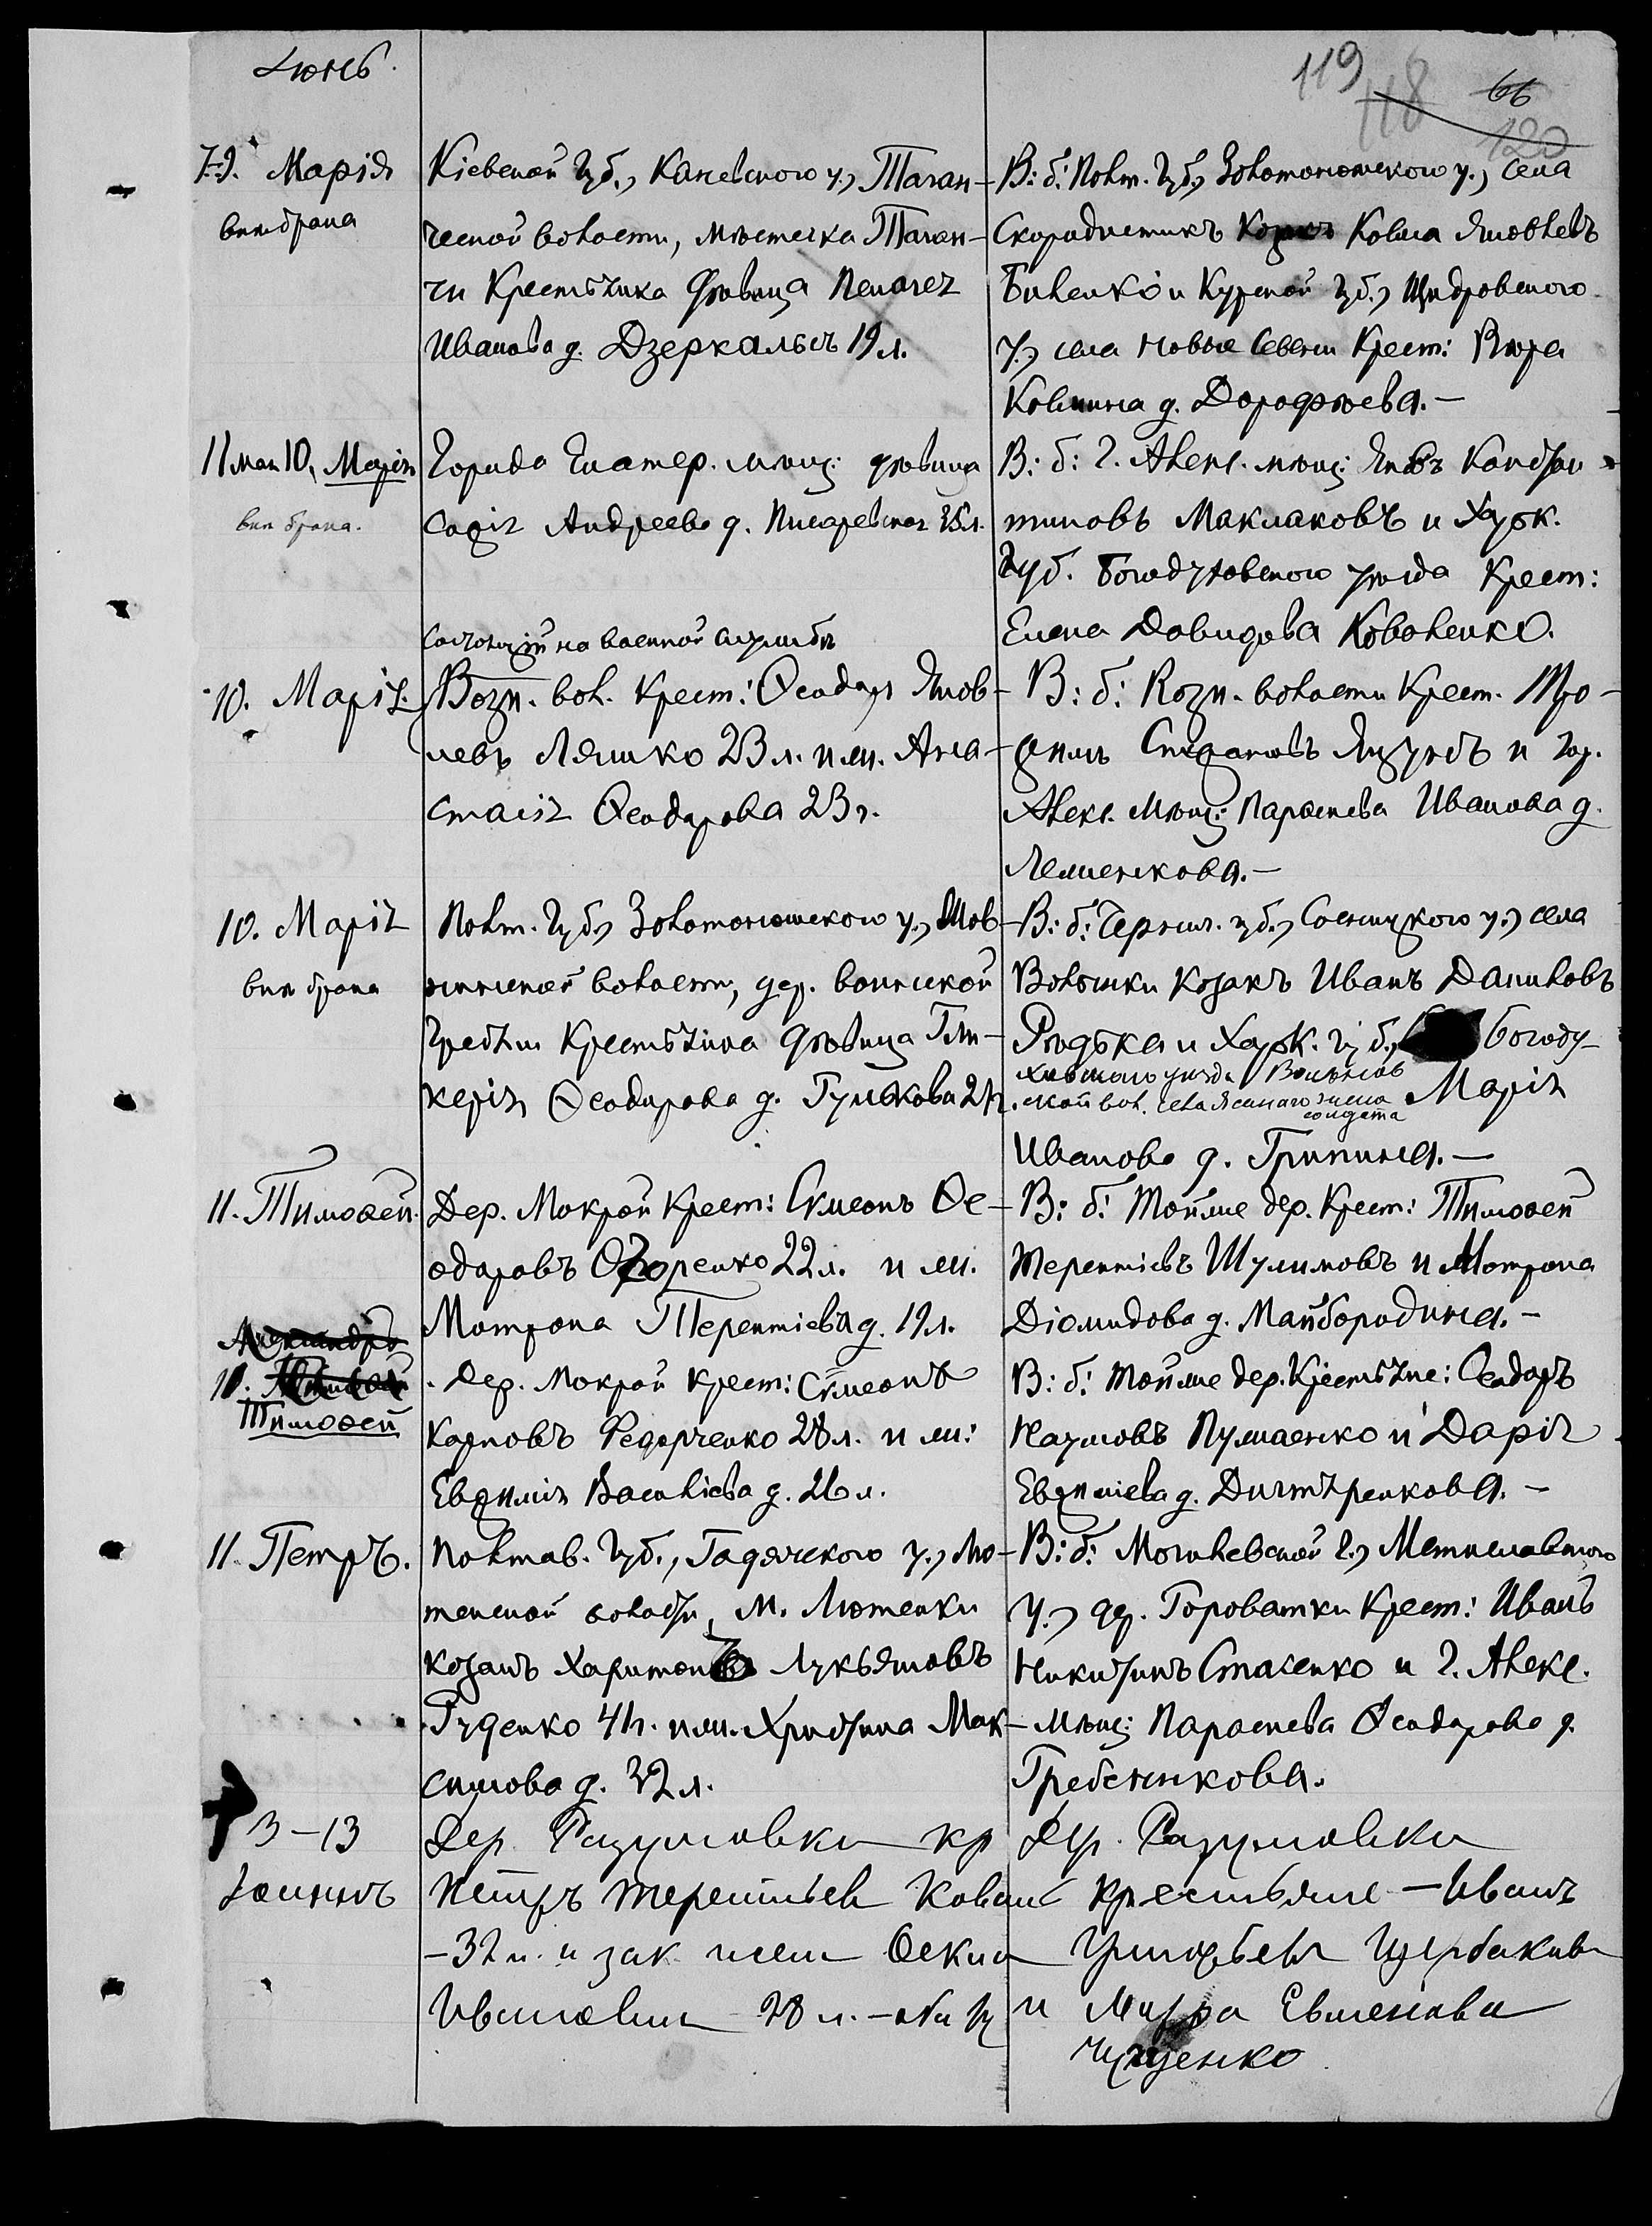 Іюнь.
119
118
66
120
7-9. Марія
внѣ брака
Кіевской губ., Каневскаго у., Таган-
чской волости, мѣстечка Таган-
чи Крестьянка дѣвица Пелагея
Иванова д. Дзеркальсъ 19 л.
В: б: Полт. губ., Золотоношскаго у., села
Скородистикъ Козма Яковлевъ
Биленко и Курской губ., Щигровскаго
у., села Новые Савины Крест: Вѣра
Козмина д. Дорофѣева. —
11 мая 10. Марія
внѣ брака.
Города Екатер. мѣщ: дѣвица
Софія Андреева д. Писаревская 25 л.
В: б: г. Алекс. мѣщ: Яковъ Констан-
тиновъ Маклаковъ и Харьк.
губ. Богодуховскаго уѣзда Крест:
Елена Давидова Коваленко.
10. Марія.
Состоящій на военной службѣ
Возн. вол. Крест: Ѳеодоръ Яков-
левъ Ляшко 23 л. и ж. Ана-
стасія Ѳеодорова 23 г.
В: б: Возн. волости Крест. Тро-
фимъ Стефановъ Яцунъ и гор.
Алекс. Мѣщ: Параскева Иванова д.
Лемешкова. —
10. Марія
внѣ брака
Полт. губ., Золотоношскаго у.,
волости, дер. воинской
Гребли Крестьянка дѣвица Гли-
керія Ѳеодорова д. Гулькова 21 л.
В: б: Черниг. губ., Сосницкаго у., села
Волынки Козакъ Иванъ Даниловъ
Рѣдька и Харьк. губ., Богоду-
ховскаго уѣзда
ской вол. села жена
солдата Марія
Иванова д. Грипина. —
11. Тимоѳей.
Дер. Мокрой Крест: Симеонъ Ѳе-
одоровъ Ѳедоренко 22 л. и ж.
Матрона Терентіева д. 19 л.
В: б: тойже дер. Крест: Тимоѳей
Терентіевъ Шулимовъ и Матрона
Діомидова д. Майбородина. —
Александръ
10. Тимоѳей
Дер. Мокрой Крест: Симеонъ
Карповъ Федорченко 28 л. и ж:
Евфимія Василіева д. 26 л.
В: б: тойже дер. Крестьяне: Ѳеодоръ
Наумовъ Пумаенко и Дарія
Евфиміева д. Дигтяренкова. —
11. Петръ.
Полтав. губ., Гадячскаго у., Лю-
тенской волости, м. Лютенки
козакъ Харитонъ Лукьяновъ
Руденко 41 г. и ж. Христина Мак-
симова д. 32 л.
В: б: Могилевской г., Мстиславскаго
у., дер. Гороватки Крест: Иванъ
Никитинъ Стасенко и г. Алекс.
мѣщ: Параскева Ѳеодорова д.
Гребенникова.
3-13
Іоаннъ
Дер. Разумовки кр
Петръ Терентьев Коваль
-32 л. и зак жена Ѳекла
Ивановна 28 л. - оба
Дер. Разумовки
крестьяне - Иванъ
Григорьев Щербаков
и Мавра Евменова